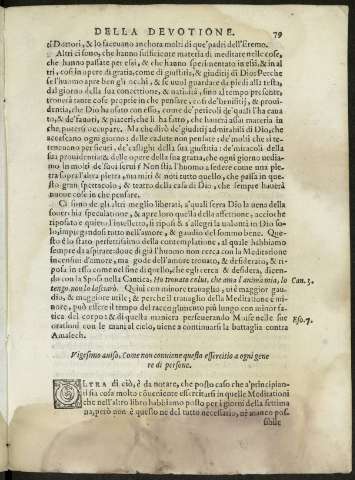 DELLA DEVOTIONE. 79
ti Dottori, & lo faceuano anchora molti di que' padri dell'Eremo.
Altri ci sono, che hanno sufficiente materia di meditare nelle cose,
che hanno passate per essi, & che hanno sperimentato in essi, & in al
tri, cosi in opere di gratia, come di giustitia, & giuditij di Dio: Perche
se l'huomo apre ben gli occhi, & se vuol guardare da alto alla testa,
dal giorno della sua concettione, & natiuità, sino al tempo presente,
trouerà tante cose proprie in che pensare, cosi de' benefitij, & proui-
dentia, che Dio ha vsato con esso, come de' pericoli de' quali l'ha caua
to, & de' fauori, & piaceri, che li ha fatto, che hauerà assai materia in
che potersi occupare. Ma che dirò de' giuditij admirabili di Dio, che
accascano ogni giorno: delle cadute non pensate: de' molti che si te-
neuano per sicuri, de' castighi della sua giustitia: de' miracoli della
sua prouidentia: & delle opere della sua gratia, che ogni giorno vedia
mo in molti de' suoi serui? Non stia l'huomo a sedere come vna pie-
tra sopra l'altra pietra, ma miri & noti tutto quello, che passa in que-
sto gran spettacolo, & teatro della casa di Dio, che sempre hauerà
nuoue cose in che pensare.
Ci sono de gli altri meglio liberati, a' quali serra Dio la uena della
souerchia speculatione, & apre loro quella della affettione, accioche
riposato e quieto l'intelletto, si riposi & s'allegri la uolontà in Dio so-
lo, impiegandosi tutto nell'amore, & gaudio del sommo bene. Que-
sto è lo stato perfettissimo della contemplatione, al quale habbiamo
sempre da aspirare: doue di già l'huomo non cerca con la Meditatione
incensiui d'amore, ma gode dell'amore trouato, & desiderato, & ri-
posa in esso come nel fine di quello, che egli cerca & desidera, dicen-
do con la Sposa nella Cantica, Ho trouato colui, che ama l'anima mia, lo Can. 3.
tengo, non lo lascierò. Quiui con minore trauaglio, ui è maggior gau-
dio, & maggiore utile; & perche il trauaglio della Meditatione è mi-
nore, può essere il tempo del raccoglimento più lungo con minor fa-
tica del corpo: & di questa maniera perseuerando Mouse nelle sue Eso. 7.
orationi con le mani al cielo, uiene a continuarsi la battaglia contra
Amalech.
Vigesimo auiso. Come non conuiene questo essercitio a ogni gene
re di persone.
OLTRA di ciò, è da notare, che posto caso che a' principian-
ti sia cosa molto conueniente esercitarsi in quelle Meditationi
che nell'altro libro habbiamo posto per i giorni della settima
na, però non è questo ne del tutto necessario, nè manco pos-
sibile